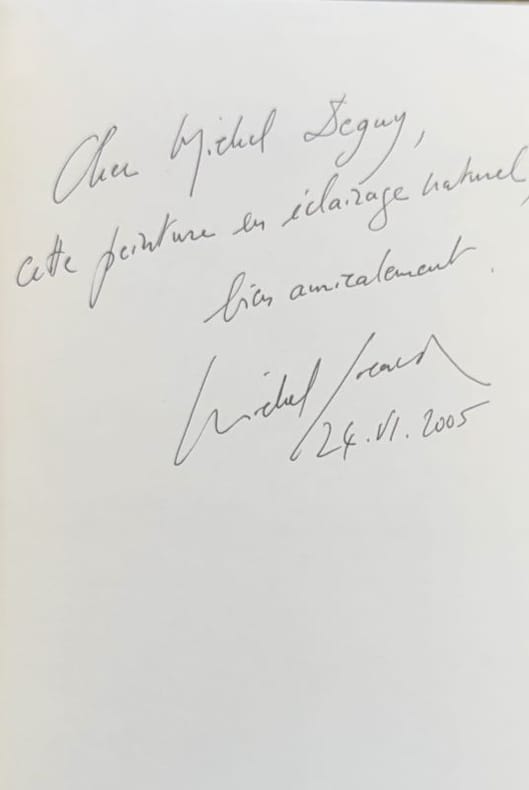 Cher Michel Deguy,
cette peinture en éclairage naturel,
bien amicalement.
Michel
24.VI.2005